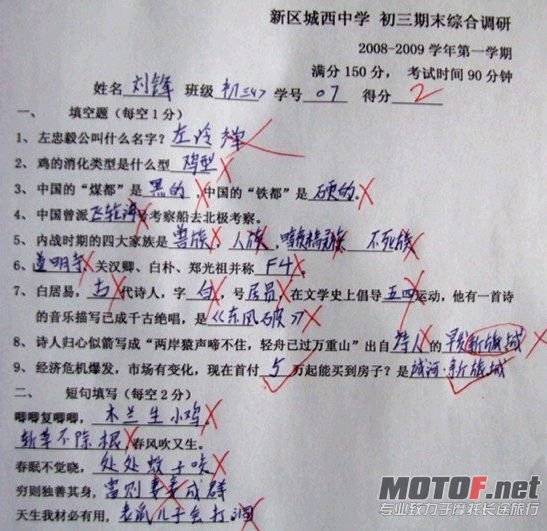 新区城西中学 初三期末综合调研
2008-2009学年第一学期
满分150分， 考试时间90分钟
姓名 刘锋 班级 初三<4> 学号 07 得分 2
一、 填空题（每空1分）
1、左忠毅公叫什么名字？左冷禅
2、鸡的消化类型是什么型 鸡型
3、中国的“煤都”是 黑的 ，中国的“铁都”是 硬的。
4、中国曾派 飞轮海号考察船去北极考察。
5、内战时期的四大家族是 兽族、人族、暗夜精灵族、不死族
6、道明寺、关汉卿、白朴、郑光祖并称 F4。
7、白居易，古代诗人，字 白，号 居易，在文学史上倡导 五四运动，他有一首诗
的音乐描写已成千古绝唱，是《东风破》
8、诗人归心似箭写成“两岸猿声啼不住，轻舟已过万重山”出自 诗人的 早发新旅城
9、经济危机爆发，市场有变化，现在首付 5 万起能买到房子？是 城河·新旅城
二、 短句填写（每空2分）
唧唧复唧唧，木兰生小鸡。
斩草不除根，春风吹又生。
春眠不觉晓，处处蚊子咬。
穷则独善其身，富则妻妾成群
天生我材必有用，老鼠儿子会打洞
MOTOF.net
专业致力于摩托长途旅行